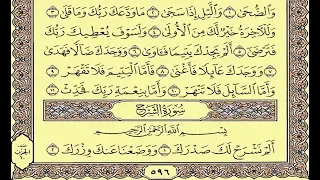 وَالضُّحَىٰ ١ وَالَّيْلِ إِذَا سَجَىٰ ٢ مَا وَدَّعَكَ رَبُّكَ وَمَا قَلَىٰ ٣
وَلَلْآخِرَةُ خَيْرٌ لَّكَ مِنَ الْأُولَىٰ ٤ وَلَسَوْفَ يُعْطِيكَ رَبُّكَ
فَتَرْضَىٰ ٥ أَلَمْ يَجِدْكَ يَتِيمًا فَآوَىٰ ٦ وَوَجَدَكَ ضَالًّا فَهَدَىٰ
٧ وَوَجَدَكَ عَائِلًا فَأَغْنَىٰ ٨ فَأَمَّا الْيَتِيمَ فَلَا تَقْهَرْ ٩
وَأَمَّا السَّائِلَ فَلَا تَنْهَرْ ١٠ وَأَمَّا بِنِعْمَةِ رَبِّكَ فَحَدِّثْ ١١
سُورَةُ الشَّرْحِ
بِسْمِ اللَّهِ الرَّحْمَٰنِ الرَّحِيمِ
أَلَمْ نَشْرَحْ لَكَ صَدْرَكَ ١ وَوَضَعْنَا عَنكَ وِزْرَكَ ٢
٥٩٦